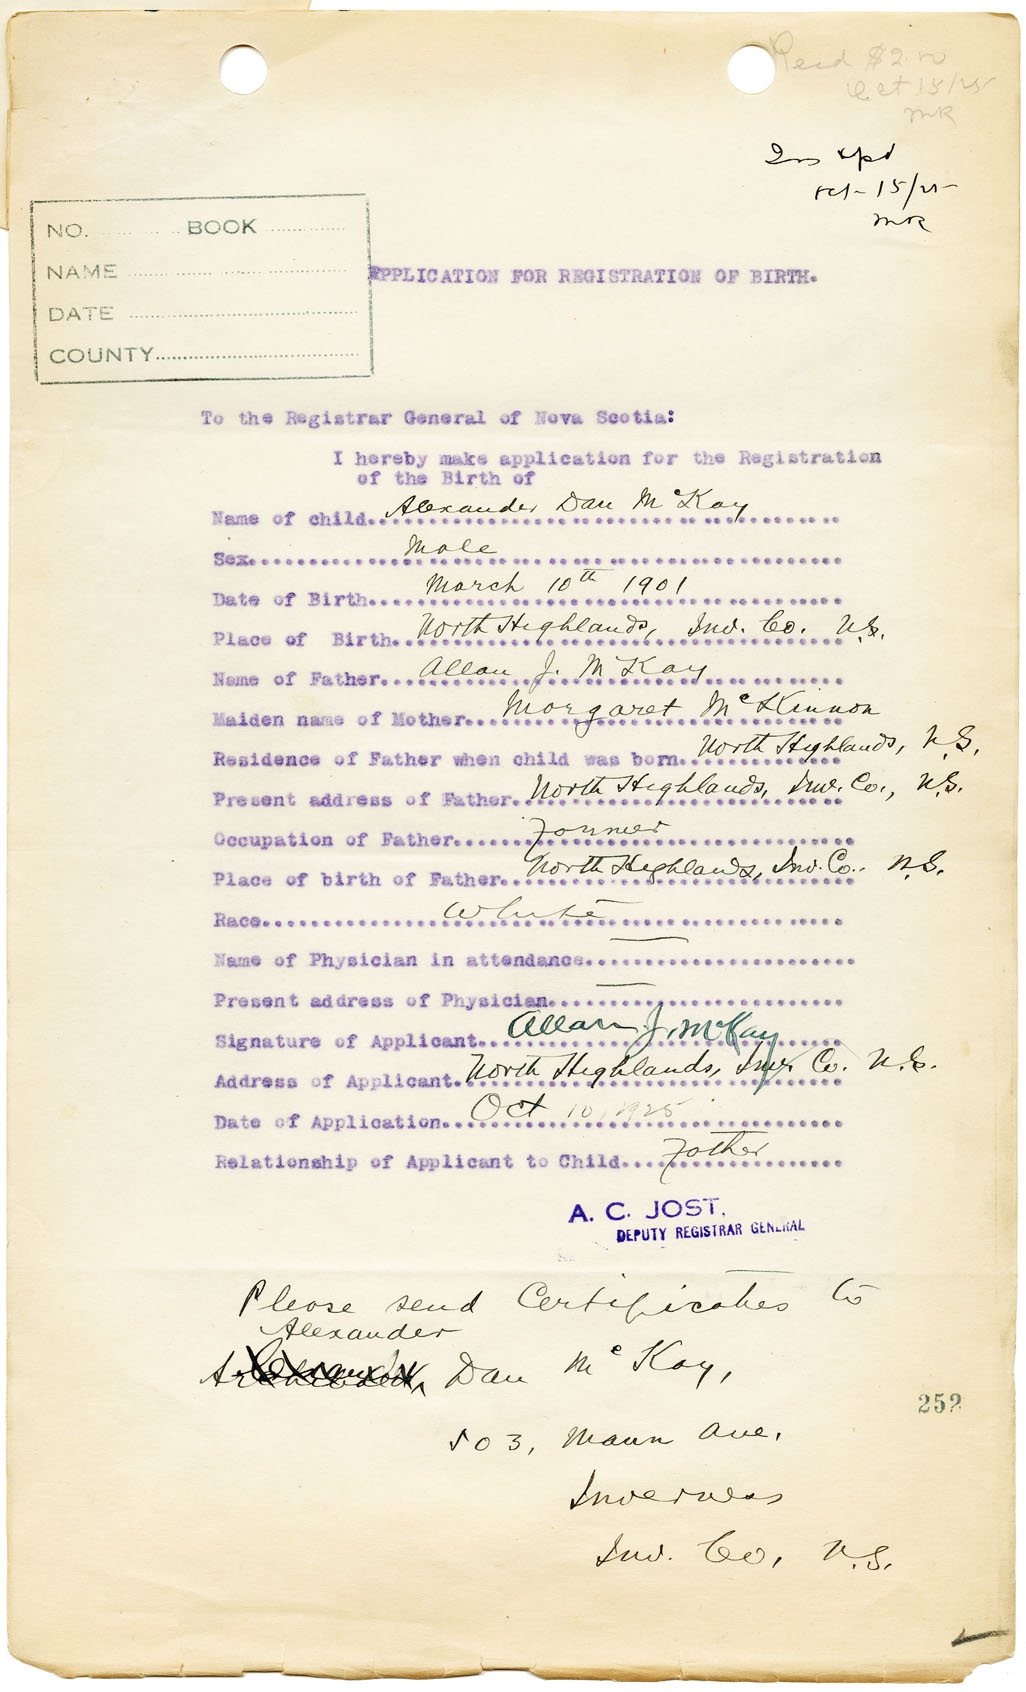 Recd $2.00
Oct 15/25
MR
Oct 15/25
MR
NO. BOOK
NAME
DATE
COUNTY
APPLICATION FOR REGISTRATION OF BIRTH.
To the Registrar General of Nova Scotia:
I hereby make application for the Registration
of the Birth of
Name of child Alexander Dan McKay
Sex Male
Date of Birth March 10th 1901
Place of Birth North Highlands, Inv. Co. N.S.
Name of Father Allan J. McKay
Maiden name of Mother Margaret McKinnon
Residence of Father when child was born North Highlands, N.S.
Present address of Father North Highlands, Inv. Co., N.S.
Occupation of Father Farmer
Place of birth of Father North Highlands, Inv. Co. N.S.
Race White
Name of Physician in attendance —
Present address of Physician —
Signature of Applicant Allan J. McKay
Address of Applicant North Highlands, Inv. Co. N.S.
Date of Application Oct 10, 1925
Relationship of Applicant to Child Father
A. C. JOST,
DEPUTY REGISTRAR GENERAL
Please send Certificates to
Alexander
Dan McKay,
252
503, Maun Ave.
Inverness
Inv. Co, N.S.